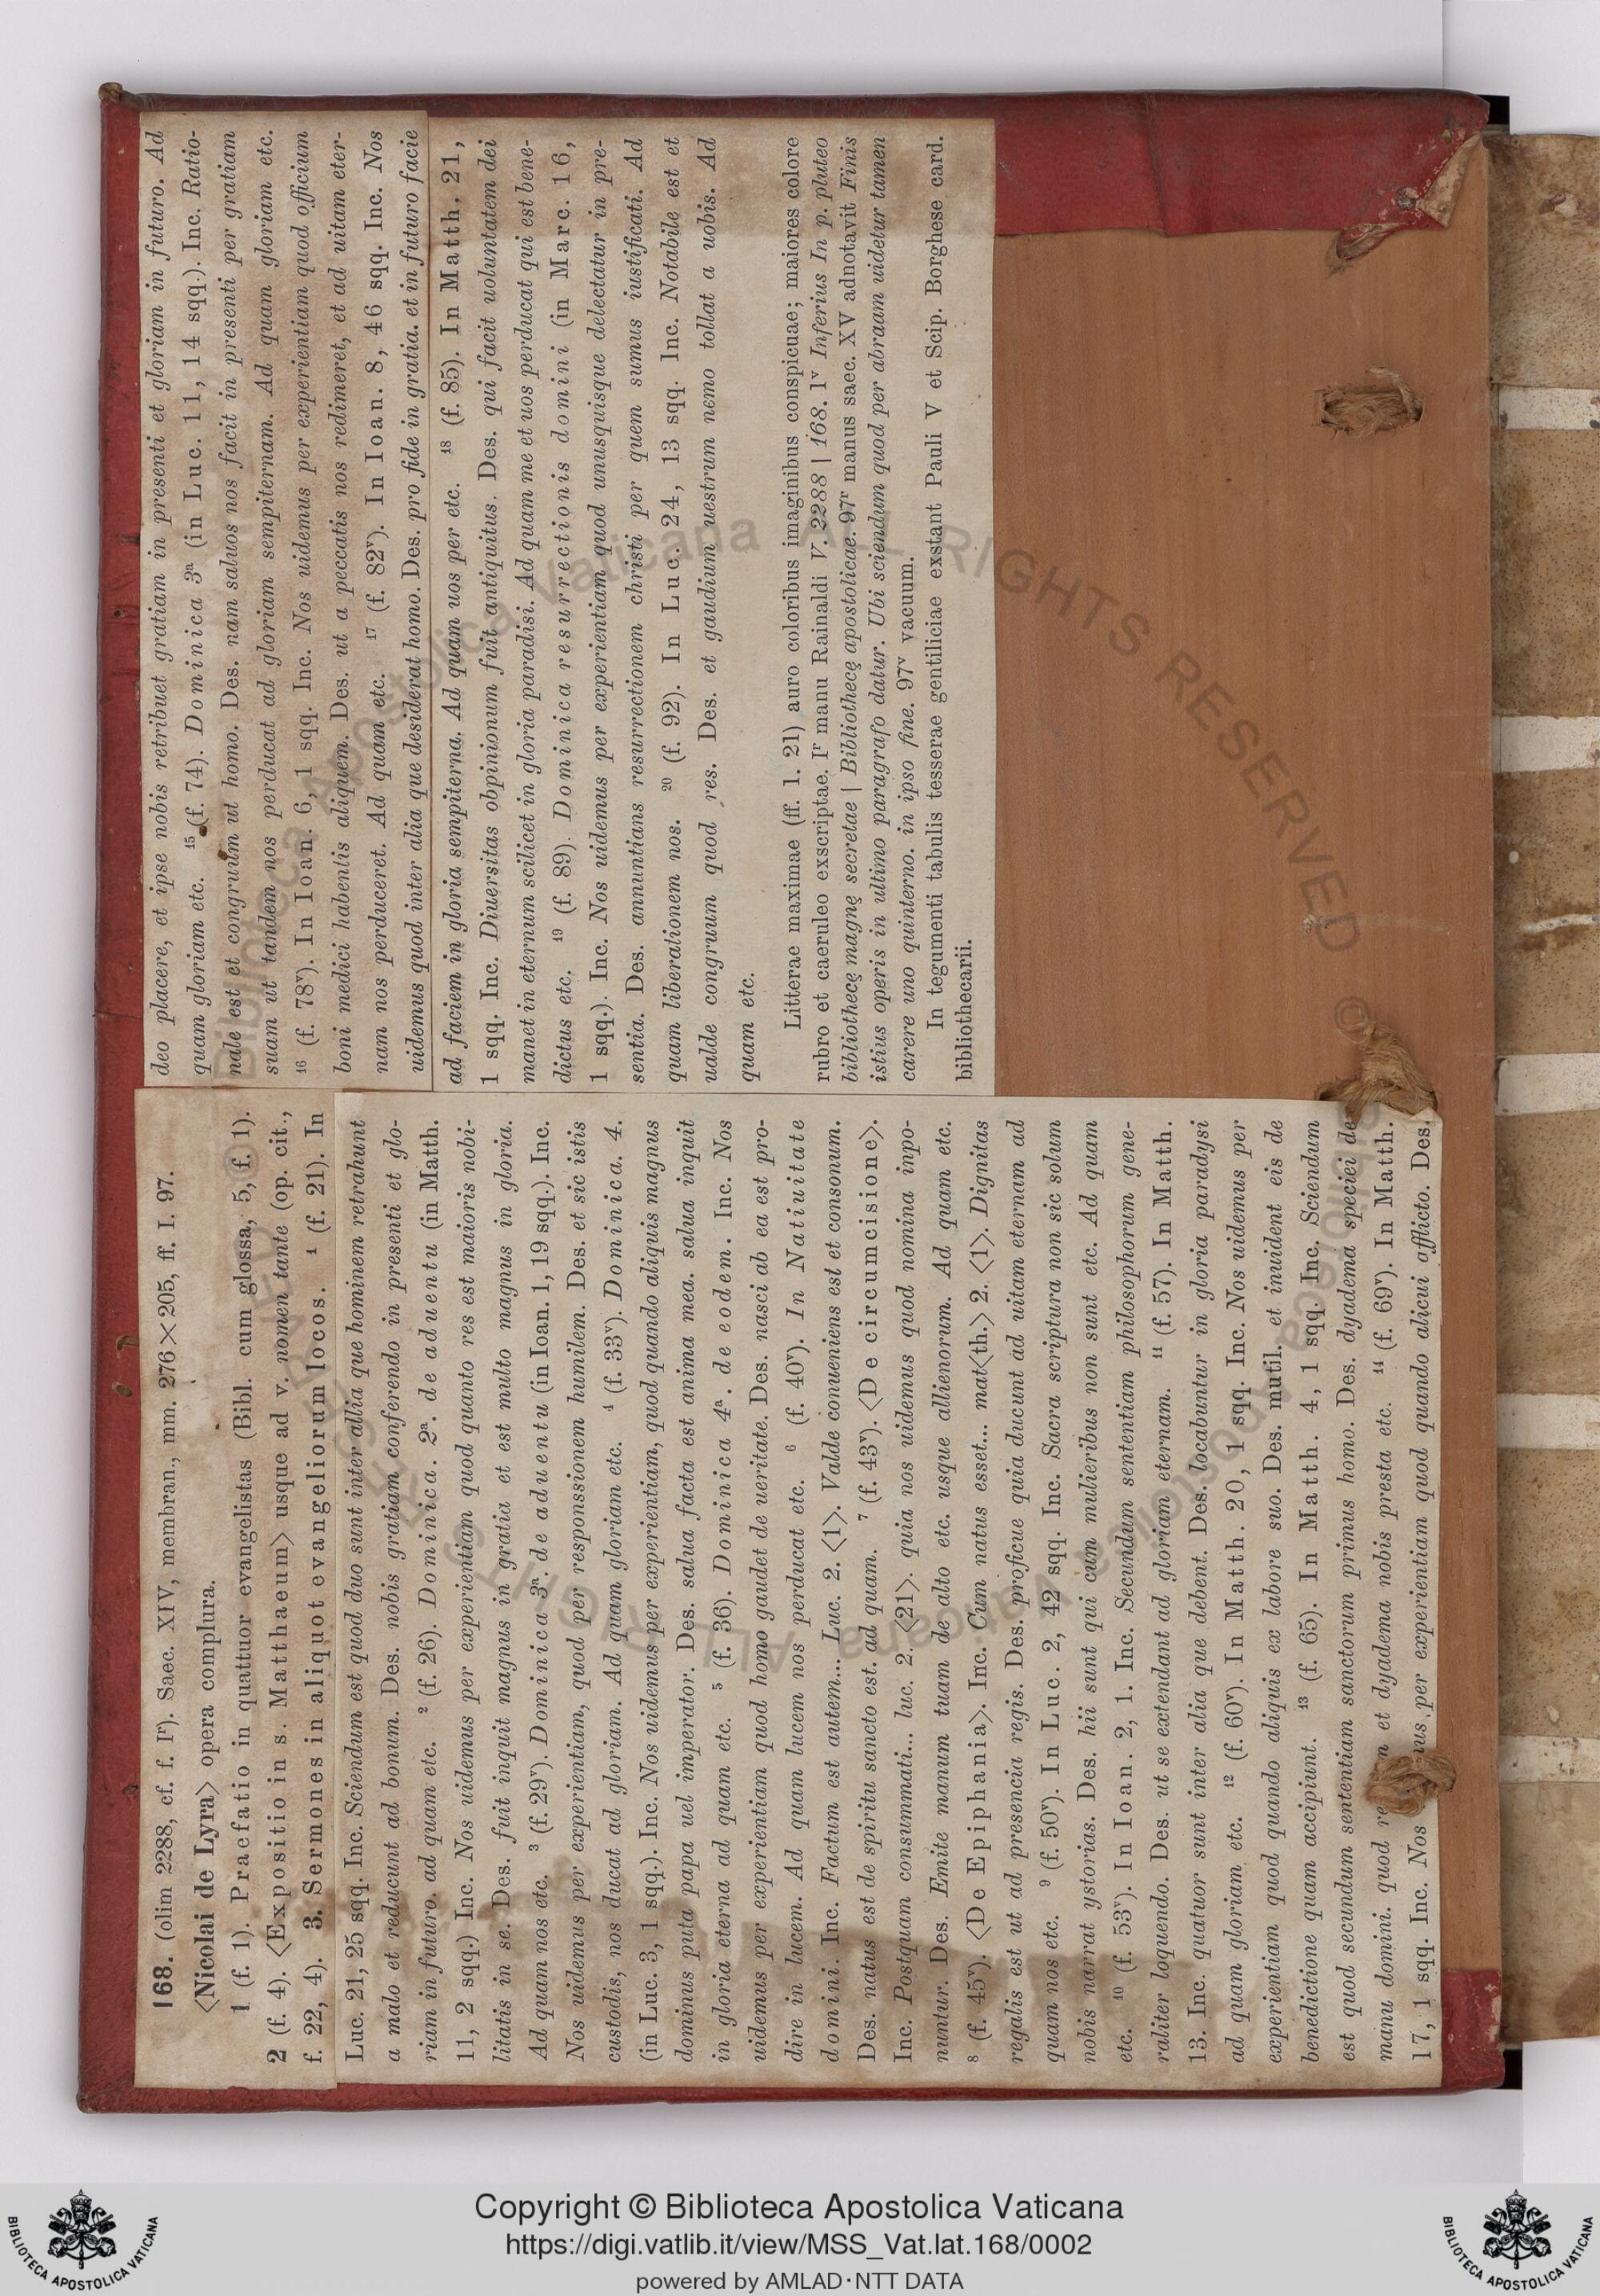 168. (olim 2288, cf. f. Iʳ). Saec. XIV, membran., mm. 276×205, ff. I. 97.
⟨Nicolai de Lyra⟩ opera complura.
1 (f. 1). Praefatio in quattuor evangelistas (Bibl. cum glossa, 5, f. 1).
2 (f. 4). ⟨Expositio in s. Matthaeum⟩ usque ad v. nomen tante (op. cit.,
f. 22, 4). 3. Sermones in aliquot evangeliorum locos. 1 (f. 21). In
Luc. 21, 25 sqq. Inc. Sciendum est quod duo sunt inter allia que hominem retrahunt
a malo et reducunt ad bonum. Des. nobis gratiam conferendo in presenti et glo-
riam in futuro. ad quam etc. 2 (f. 26). Dominica. 2ª. de aduentu (in Matth.
11, 2 sqq.) Inc. Nos uidemus per experientiam quod quanto res est maioris nobi-
litatis in se. Des. fuit inquit magnus in gratia et est multo magnus in gloria.
Ad quam nos etc. 3 (f. 29ᵛ). Dominica 3ª. de aduentu (in Ioan. 1, 19 sqq.). Inc.
Nos uidemus per experientiam, quod per responssionem humilem. Des. et sic istis
custodis, nos ducat ad gloriam. Ad quam gloriam etc. 4 (f. 33ᵛ). Dominica. 4.
(in Luc. 3, 1 sqq.). Inc. Nos uidemus per experientiam, quod quando aliquis magnus
dominus puta papa uel imperator. Des. salua facta est anima mea. salua inquit
in gloria eterna ad quam etc. 5 (f. 36). Dominica 4ª. de eodem. Inc. Nos
uidemus per experientiam quod homo gaudet de ueritate. Des. nasci ab ea est pro-
dire in lucem. Ad quam lucem nos perducat etc. 6 (f. 40ᵛ). In Natiuitate
domini. Inc. Factum est autem... Luc. 2. ⟨1⟩. Valde conueniens est et consonum.
Des. natus est de spiritu sancto est. ad quam. 7 (f. 43ᵛ). ⟨De circumcisione⟩.
Inc. Postquam consummati... luc. 2. ⟨21⟩. quia nos uidemus quod nomina inpo-
nuntur. Des. Emite manum tuam de alto etc. usque allienorum. Ad quam etc.
8 (f. 45ᵛ). ⟨De Epiphania⟩. Inc. Cum natus esset... mat⟨th.⟩ 2. ⟨1⟩. Dignitas
regalis est ut ad presencia regis. Des. proficue quia ducunt ad uitam eternam ad
quam nos etc. 9 (f. 50ᵛ). In Luc. 2, 42 sqq. Inc. Sacra scriptura non sic solum
nobis narrat ystorias. Des. hii sunt qui cum mulieribus non sunt etc. Ad quam
etc. 10 (f. 53ᵛ). In Ioan. 2, 1. Inc. Secundum sententiam philosophorum gene-
raliter loquendo. Des. ut se extendant ad gloriam eternam. 11 (f. 57). In Matth.
13. Inc. quatuor sunt inter alia que debent. Des. locabuntur in gloria paradysi
ad quam gloriam etc. 12 (f. 60ᵛ). In Matth. 20, 1 sqq. Inc. Nos uidemus per
experientiam quod quando aliquis ex labore suo. Des. mutil. et inuident eis de
benedictione quam accipiunt. 13 (f. 65). In Matth. 4, 1 sqq. Inc. Sciendum
est quod secundum sententiam sanctorum primus homo. Des. dyadema speciei de
manu domini. quod et dyadema nobis presta etc. 14 (f. 69ᵛ). In Matth.
17, 1 sqq. Inc. Nos per experientiam quod quando alicui afflicto. Des.
deo placere, et ipse nobis retribuet gratiam in presenti et gloriam in futuro. Ad
quam gloriam etc. 15 (f. 74). Dominica 3ª (in Luc. 11, 14 sqq.). Inc. Ratio-
nale est et congruum ut homo. Des. nam saluos nos facit in presenti per gratiam
suam ut tandem nos perducat ad gloriam sempiternam. Ad quam gloriam etc.
16 (f. 78ᵛ). In Ioan. 6, 1 sqq. Inc. Nos uidemus per experientiam quod officium
boni medici habentis aliquem. Des. ut a peccatis nos redimeret, et ad uitam eter-
nam nos perduceret. Ad quam etc. 17 (f. 82ᵛ). In Ioan. 8, 46 sqq. Inc. Nos
uidemus quod inter alia que desiderat homo. Des. pro fide in gratia. et in futuro facie
ad faciem in gloria sempiterna. Ad quam uos per etc. 18 (f. 85). In Matth. 21,
1 sqq. Inc. Diuersitas obpinionum fuit antiquitus. Des. qui facit uoluntatem dei
manet in eternum scilicet in gloria paradisi. Ad quam me et uos perducat qui est bene-
dictus etc. 19 (f. 89). Dominica resurrectionis domini (in Marc. 16,
1 sqq.). Inc. Nos uidemus per experientiam quod unusquisque delectatur in pre-
sentia. Des. annuntians resurrectionem christi per quem sumus iustificati. Ad
quam liberationem nos. 20 (f. 92). In Luc. 24, 13 sqq. Inc. Notabile est et
ualde congruum quod res. Des. et gaudium uestrum nemo tollat a uobis. Ad
quam etc.
Litterae maximae (ff. 1. 21) auro coloribus imaginibus conspicuae; maiores colore
rubro et caeruleo exscriptae. Iʳ manu Rainaldi V. 2288 | 168. 1ᵛ Inferius In p. pluteo
bibliothecę magnę secretae | Bibliothecę apostolicae. 97ʳ manus saec. XV adnotavit Finis
istius operis in ultimo paragrafo datur. Ubi sciendum quod per abraam uidetur tamen
carere uno quinterno. in ipso fine. 97ᵛ vacuum.
In tegumenti tabulis tesserae gentiliciae exstant Pauli V et Scip. Borghese card.
bibliothecarii.
Biblioteca Apostolica Vaticana ALL RIGHTS RESERVED ©
Copyright © Biblioteca Apostolica Vaticana
https://digi.vatlib.it/view/MSS_Vat.lat.168/0002
powered by AMLAD·NTT DATA
BIBLIOTECA APOSTOLICA VATICANA
BIBLIOTECA APOSTOLICA VATICANA